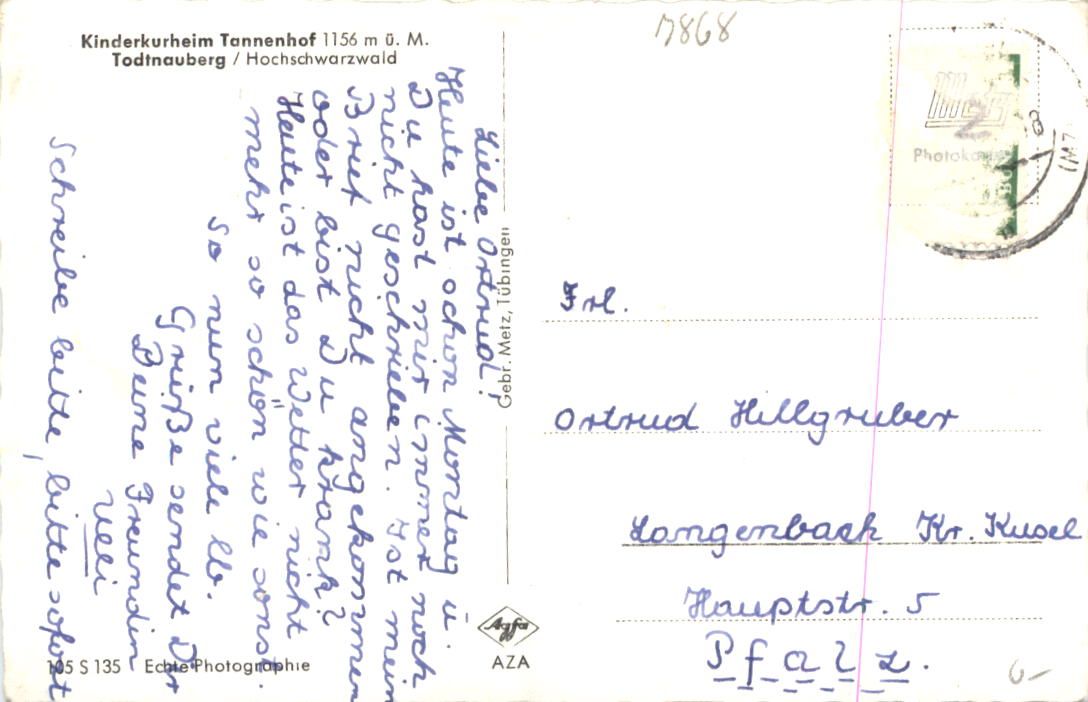 Kinderkurheim Tannenhof 1156 m ü. M.
Todtnauberg / Hochschwarzwald
Liebe Ortrud!
Heute ist schon Montag u.
Du hast mir immer noch
nicht geschrieben. Ist mein
Brief nicht angekommen
oder bist Du krank?
Heute ist das Wetter nicht
mehr so schön wie sonst.
So nun viele lb.
Grüße sendet Dir
Deine Freundin
Ulli
Schreibe bitte, bitte sofort
105 S 135 Echte Photographie
Gebr. Metz, Tübingen
Agfa
AZA
7868
Metz
Frl.
Ortrud Hillgruber
Langenbach Kr. Kusel
Hauptstr. 5
Pfalz.
6-